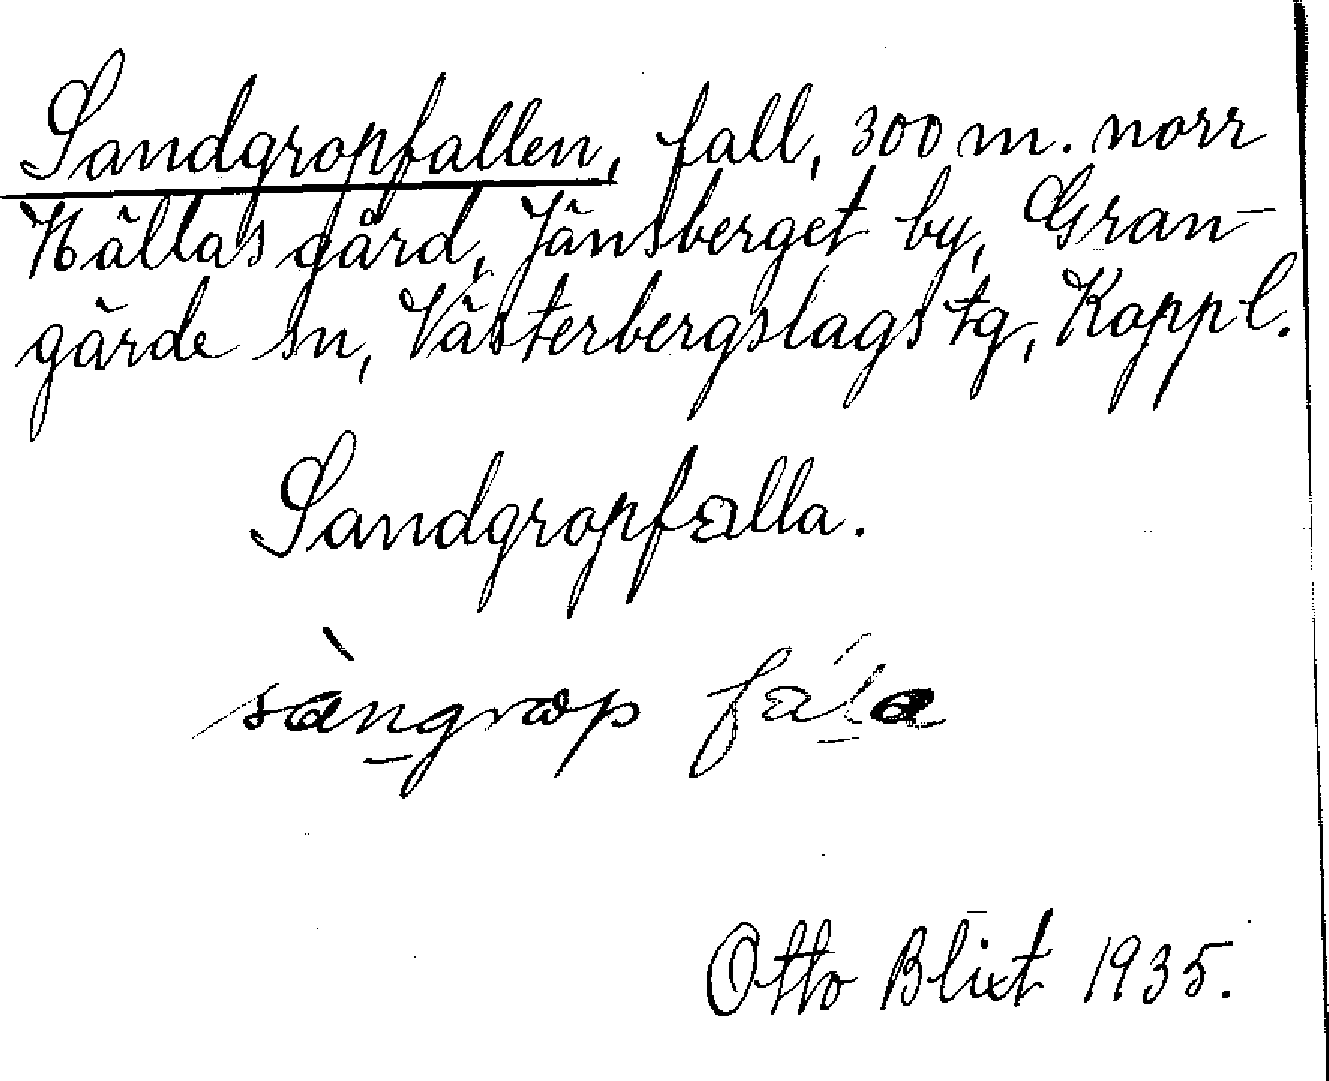 Sandgropfallen, fall, 300 m. norr
Hållas gård, Jänsberget by, Gran-
gärde sn, Västerbergslags tg, Koppl.
Sandgropfalla.
sàngrop fála
Otto Blixt 1935.